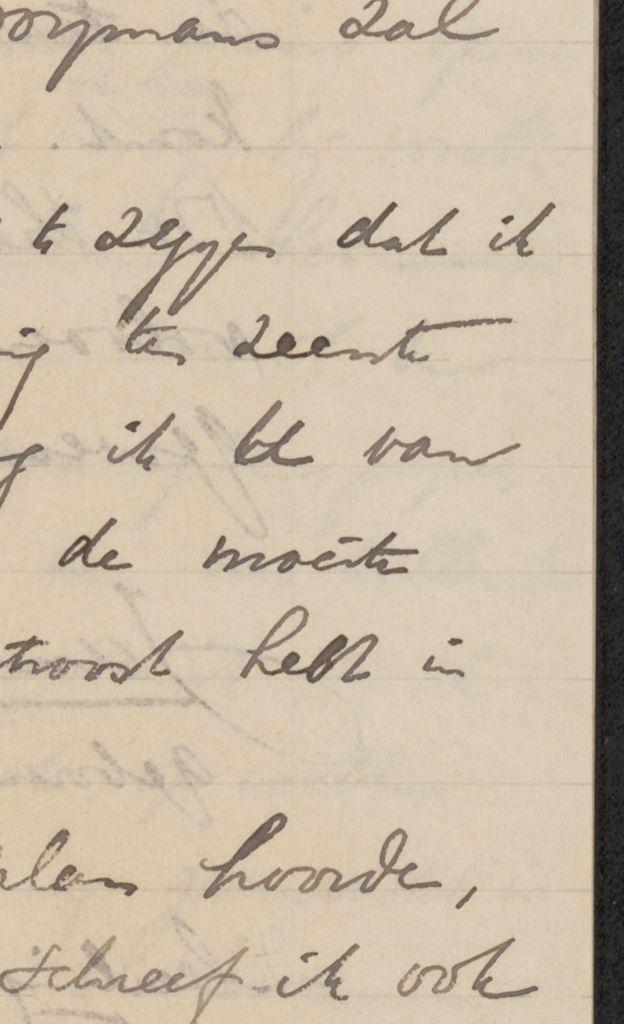 ooymans zal
te zeggen dat ik
ten zeerste
ik U van
de moeite
troost hebt in
hoorde,
schreef ik ook